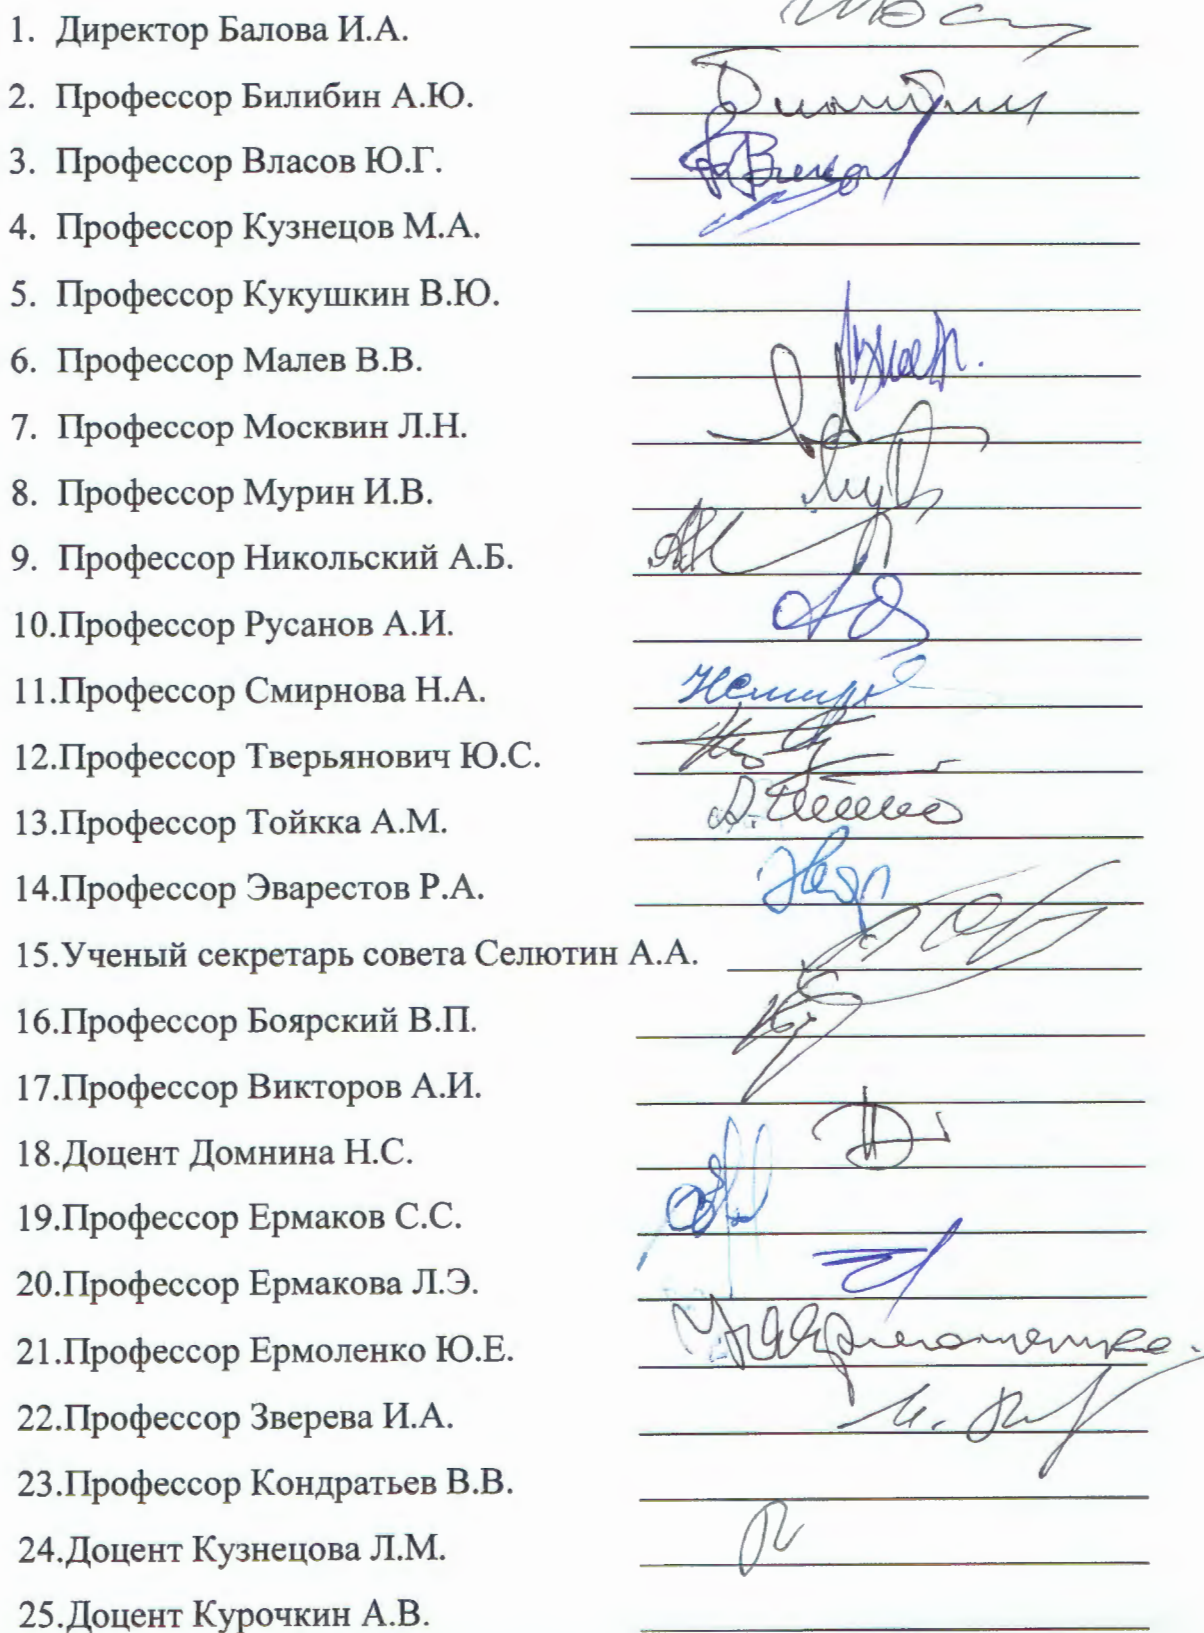 1. Директор Балова И.А.
2. Профессор Билибин А.Ю.
3. Профессор Власов Ю.Г.
4. Профессор Кузнецов М.А.
5. Профессор Кукушкин В.Ю.
6. Профессор Малев В.В.
7. Профессор Москвин Л.Н.
8. Профессор Мурин И.В.
9. Профессор Никольский А.Б.
10.Профессор Русанов А.И.
11.Профессор Смирнова Н.А.
12.Профессор Тверьянович Ю.С.
13.Профессор Тойкка А.М.
14.Профессор Эварестов Р.А.
15.Ученый секретарь совета Селютин А.А.
16.Профессор Боярский В.П.
17.Профессор Викторов А.И.
18.Доцент Домнина Н.С.
19.Профессор Ермаков С.С.
20.Профессор Ермакова Л.Э.
21.Профессор Ермоленко Ю.Е.
22.Профессор Зверева И.А.
23.Профессор Кондратьев В.В.
24.Доцент Кузнецова Л.М.
25.Доцент Курочкин А.В.